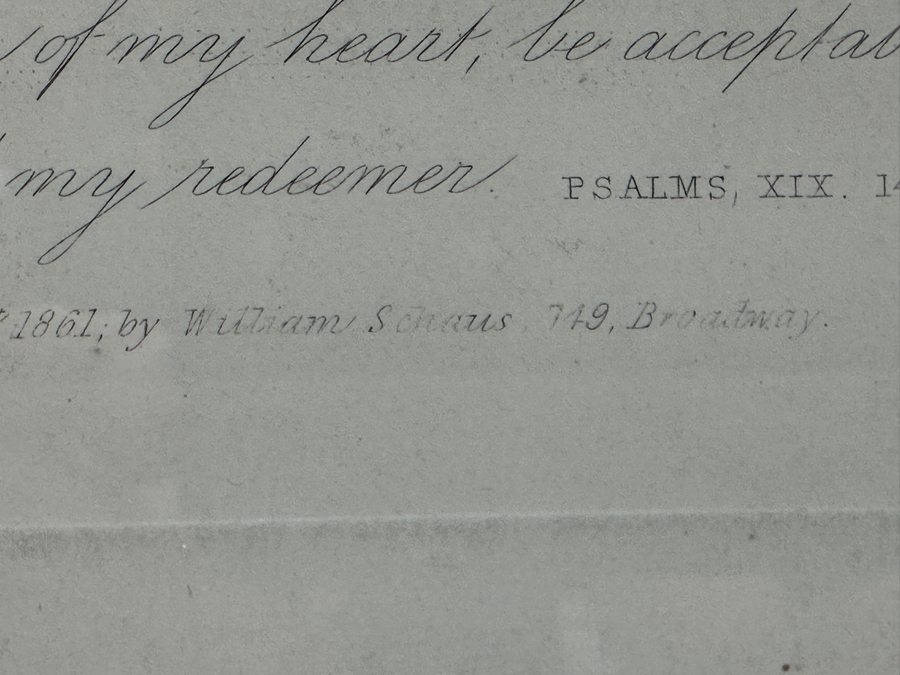 of my heart, be acceptab
my redeemer. PSALMS, XIX. 14
1861, by William Schaus, 749, Broadway.